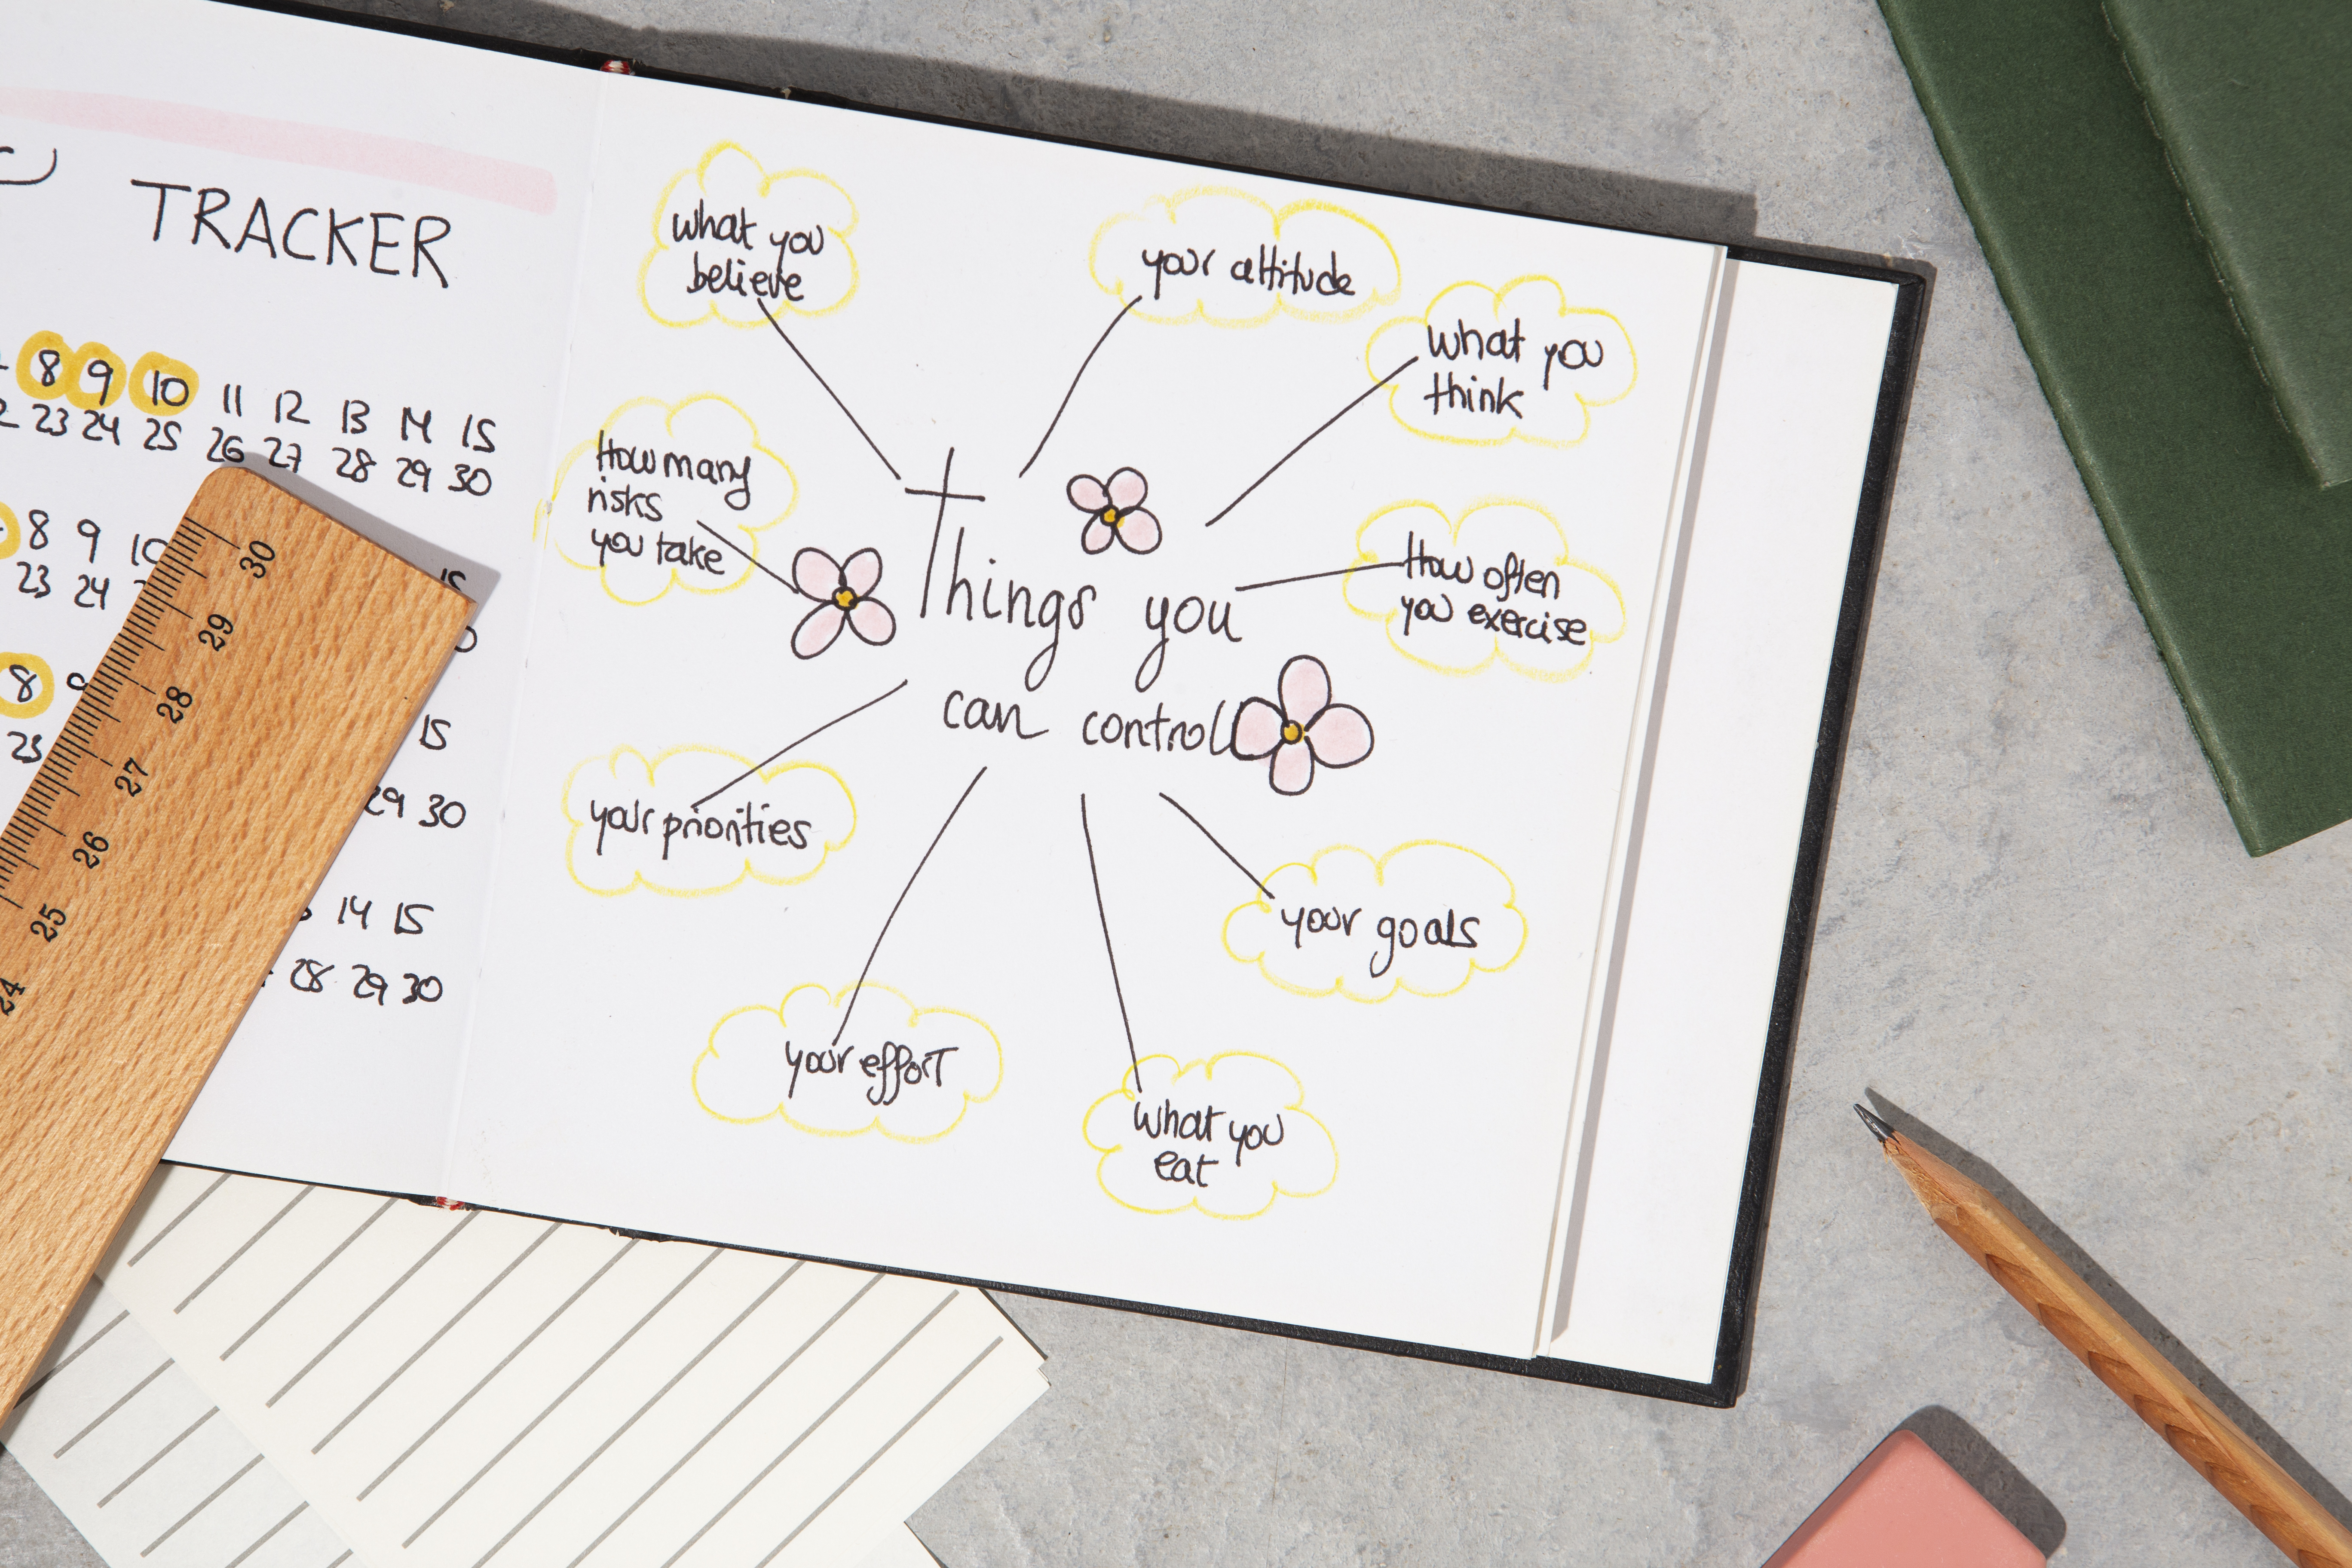 TRACKER
8 9 10 11 12 13 14 15
23 24 25 26 27 28 29 30
8 9 10
23 24
15
8 9
23
15
29 30
14 15
28 29 30
30
29
28
27
26
25
24
what you
believe
your attitude
what you
think
How many
risks
you take
How often
you exercise
Things you
can control
your priorities
your goals
your effort
what you
eat